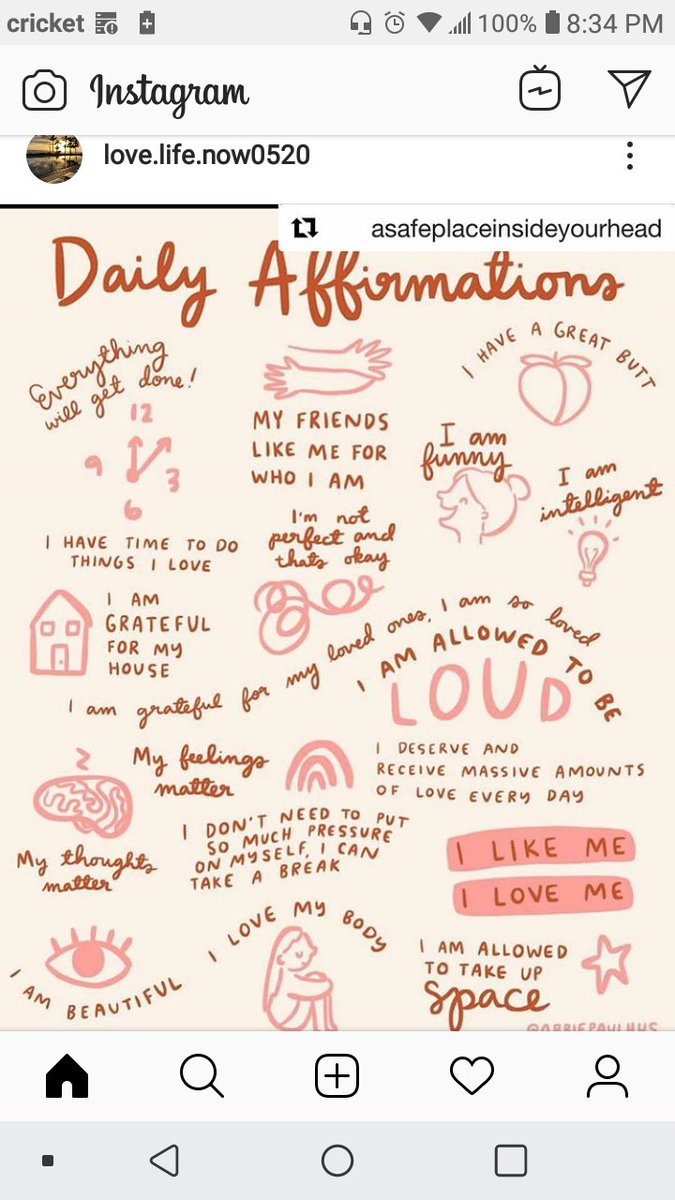 cricket
100% 8:34 PM
Instagram
love.life.now0520
asafeplaceinsideyourhead
Daily Affirmations
Everything
will get done!
12
9
3
6
MY FRIENDS
LIKE ME FOR
WHO I AM
I HAVE A GREAT BUTT
I am
funny
I am
intelligent
I HAVE TIME TO DO
THINGS I LOVE
I'm not
perfect and
thats okay
I AM
GRATEFUL
FOR MY
HOUSE
I am grateful for my loved ones, I am so loved
I AM ALLOWED TO BE
LOUD
My feelings
matter
I DESERVE AND
RECEIVE MASSIVE AMOUNTS
OF LOVE EVERY DAY
My thoughts
matter
I DON'T NEED TO PUT
SO MUCH PRESSURE
ON MYSELF, I CAN
TAKE A BREAK
I LIKE ME
I LOVE ME
I AM BEAUTIFUL
I LOVE MY BODY
I AM ALLOWED
TO TAKE UP
space